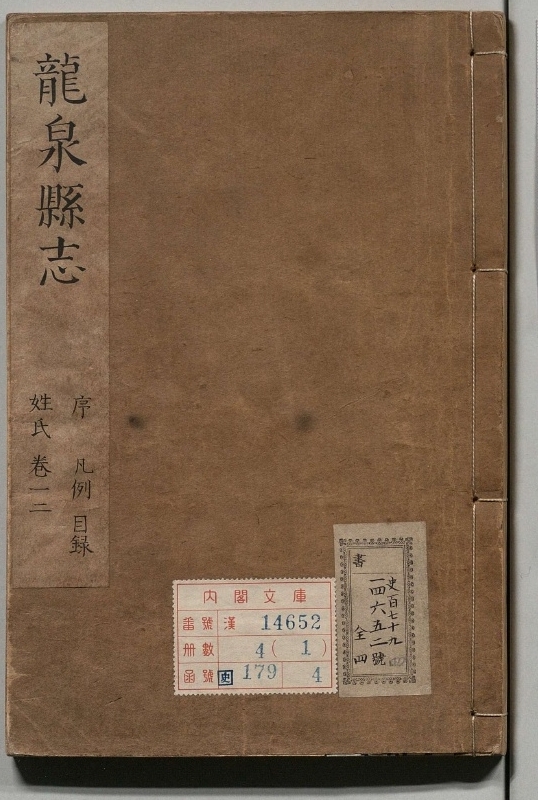 龍泉縣志
序 凡例 目録
姓氏 卷一二
内閣文庫
番號 漢 14652
冊數 4(1)
函號 史 179 4
書
史百七十九
一四六五二號
全四